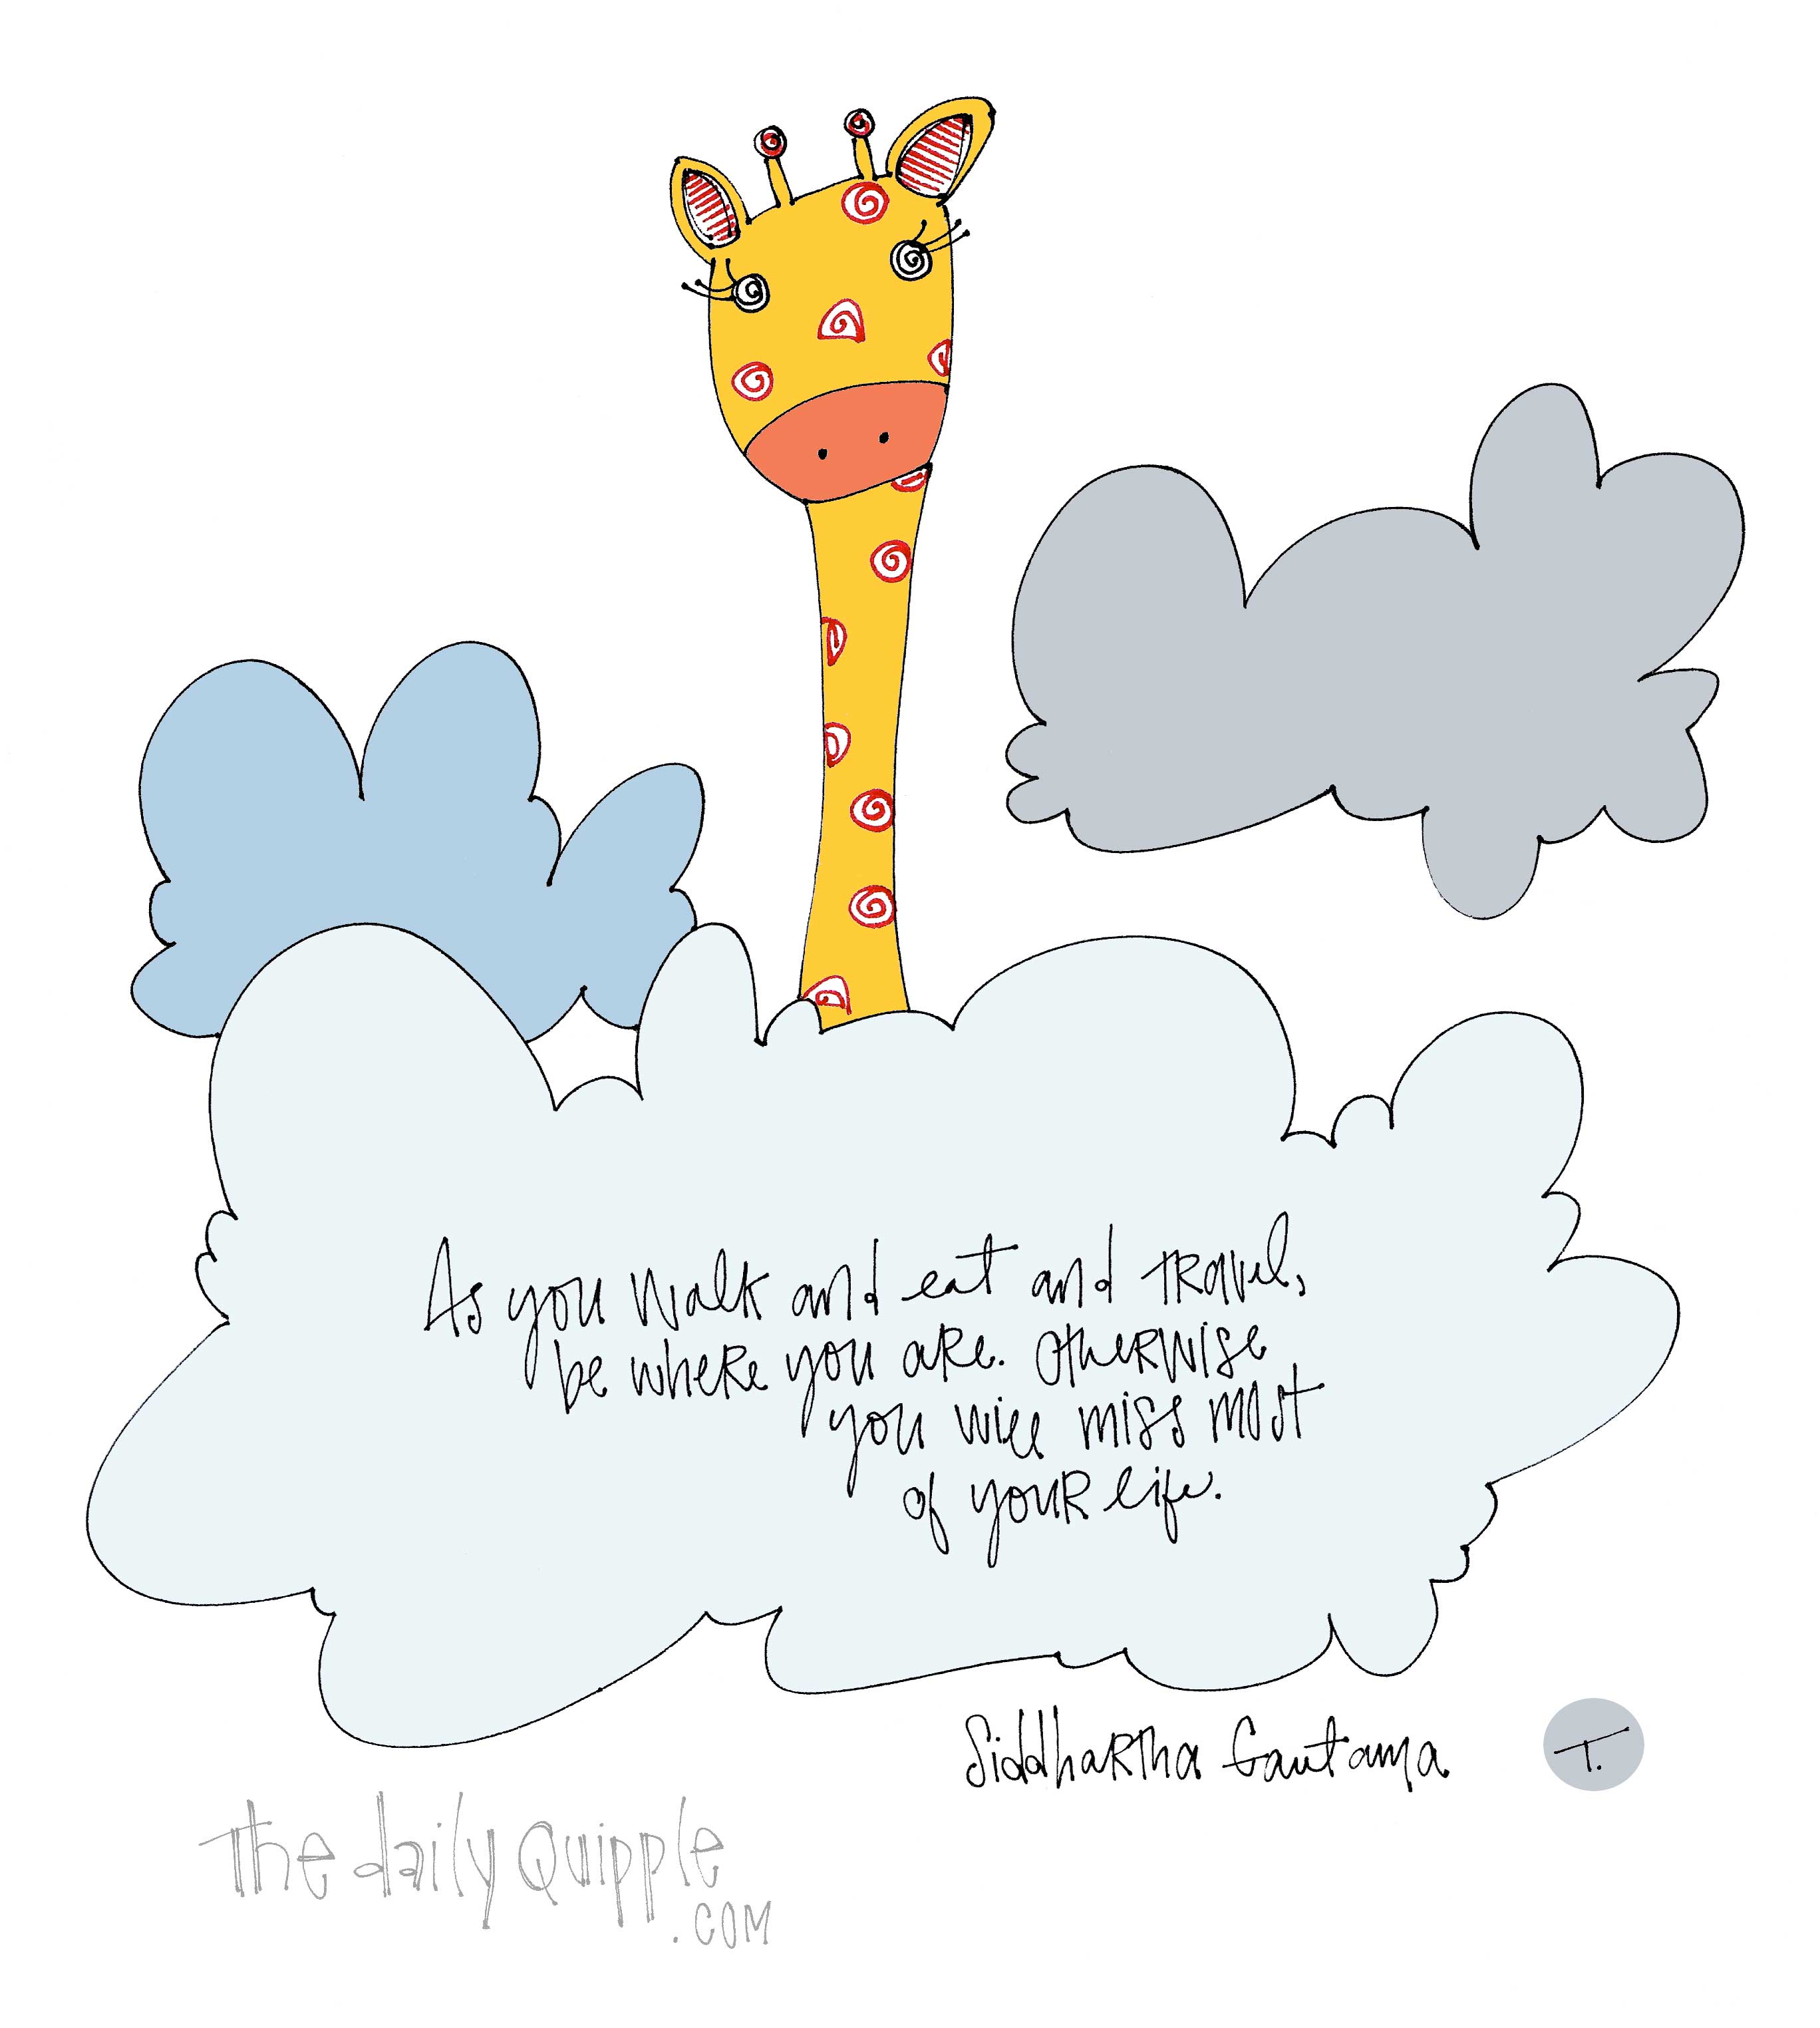 As you walk and eat and travel,
be where you are. Otherwise
you will miss most
of your life.
Siddhartha Gautama
T.
the daily Quipple
.com